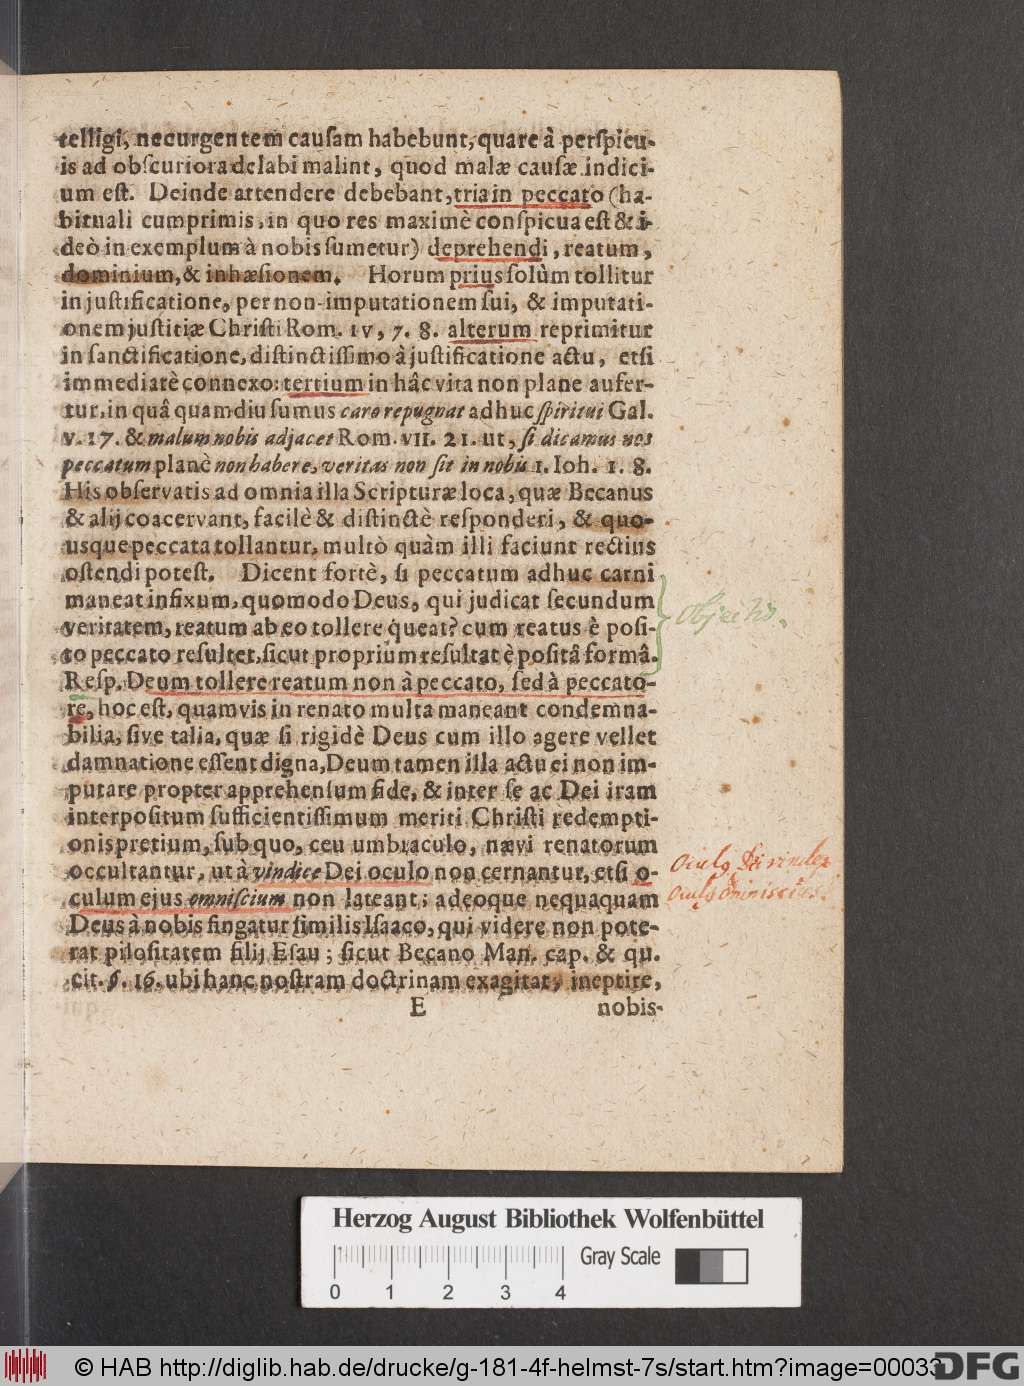 telligi, nec urgentem cauſam habebunt, quare à perſpicu-
is ad obſcuriora delabi malint, quod malæ cauſæ indici-
um eſt. Deinde attendere debebant, tria in peccato (ha-
bituali cumprimis, in quo res maximè conſpicua eſt & i-
deò in exemplum à nobis ſumetur) deprehendi, reatum,
dominium, & inhæſionem. Horum prius ſolùm tollitur
in juſtificatione, per non-imputationem ſui, & imputati-
onem juſtitiæ Chriſti Rom. IV, 7. 8. alterum reprimitur
in ſanctificatione, diſtinctiſſimo à juſtificatione actu, etſi
immediatè connexo: tertium in hâc vita non plane aufer-
tur, in quâ quamdiu ſumus caro repugnat adhuc ſpiritui Gal.
V. 17. & malum nobis adjacet Rom. VII. 21. ut, ſi dicamus nos
peccatum planè non habere, veritas non ſit in nobis 1. Ioh. 1. 8.
His obſervatis ad omnia illa Scripturæ loca, quæ Becanus
& alij coacervant, facilè & diſtinctè reſponderi, & quo-
usque peccata tollantur, multò quàm illi faciunt rectius
oſtendi poteſt. Dicent fortè, ſi peccatum adhuc carni
maneat infixum, quomodo Deus, qui judicat ſecundum
veritatem, reatum ab eo tollere queat? cum reatus è poſi-
to peccato reſultet, ſicut proprium reſultat è poſitâ formâ.
Objectio.
Reſp. Deum tollere reatum non à peccato, ſed à peccato-
re, hoc eſt, quamvis in renato multa maneant condemna-
bilia, ſive talia, quæ ſi rigidè Deus cum illo agere vellet
damnatione eſſent digna, Deum tamen illa actu ei non im-
putare propter apprehenſum fide, & inter ſe ac Dei iram
interpoſitum ſufficientiſſimum meriti Chriſti redempti-
onis pretium, ſub quo, ceu umbraculo, nævi renatorum
occultantur, ut à vindice Dei oculo non cernantur, etſi o-
culum ejus omniſcium non lateant; adeoque nequaquam
Deus à nobis fingatur ſimilis Iſaaco, qui videre non pote-
rat piloſitatem filij Eſau; ſicut Becano Man. cap. & qu.
cit. §. 16. ubi hanc noſtram doctrinam exagitat, ineptire,
E nobis-
Herzog August Bibliothek Wolfenbüttel
Gray Scale
0 1 2 3 4
© HAB http://diglib.hab.de/drucke/g-181-4f-helmst-7s/start.htm?image=00033
DFG